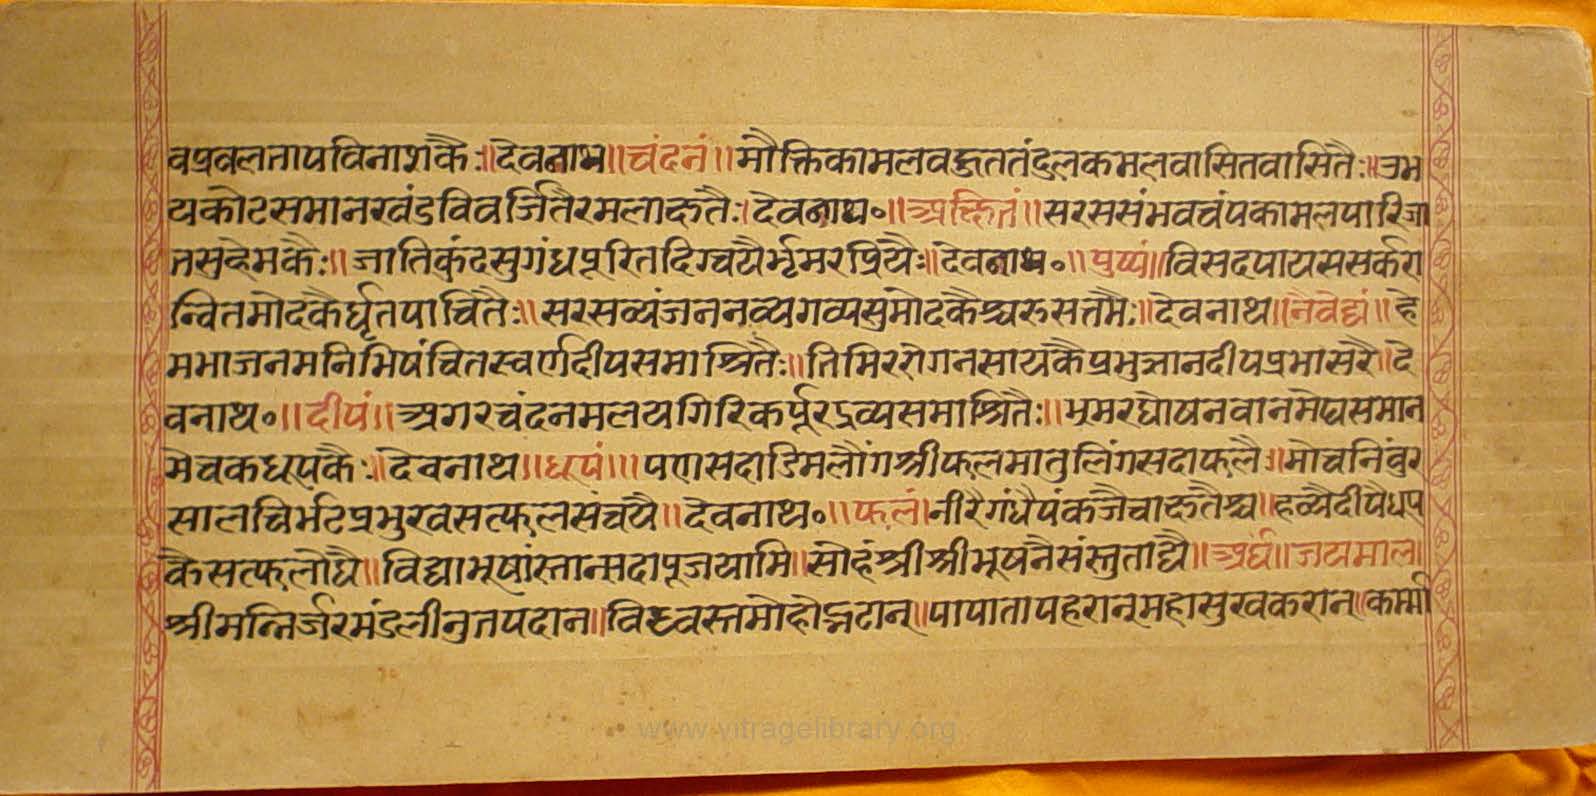 वप्रवलतापविनाशकैः॥देवनाथ॥चंदनं॥मौक्तिकामलवद्युततंदुलकमलवासितवासितैः॥उभ
यकोटसमानखंडविवर्जितैरमलाक्षतैः।देवनाथ०॥अक्षितं॥सरससंभवचंपकामलपारिजा
तसुहेमकैः॥जातिकुंदसुगंधपूरितदिग्चयैर्भृमरप्रियैः॥देवनाथ०॥पुष्पं॥विसदपायससर्करा
न्वितमोदकैर्घृतपाचितैः॥सरसव्यंजननव्यगव्यसुमोदकैश्चरुसत्तमैः॥देवनाथ॥नैवेद्यं॥हे
मभाजनमनिभिषंचितस्वर्णदीपसमाश्रितैः॥तिमिररोगनसायकैप्रभुज्ञानदीपप्रभासरै॥दे
वनाथ०॥दीपं॥अगरचंदनमलयगिरिकर्पूरद्रव्यसमाश्रितैः॥भ्रमरघोषनवानमेघसमान
मेचकधूपकैः॥देवनाथ॥धूपं॥पणसदाडिमलौंगश्रीफलमातुलिंगसदाफलैः॥मोचनिंवुर
सालचिर्भटप्रभुखसत्फलसंचयै॥देवनाथ०॥फलं॥नीरैगंधैपंकजैचाक्षतैश्च॥हव्यैदीपैधूप
कैसत्फलोघै॥विद्याभूषांस्तान्सदापूजयामि॥सोहंश्रीश्रीभूषनैसंस्तुताद्यै॥अर्घ॥जयमाल।
श्रीमन्निर्जरमंडलीनुतपदान॥विध्वस्तमोहोद्भटान्॥पापातापहरान्महासुखकरान्॥कर्म्मा
www.vitragelibrary.org